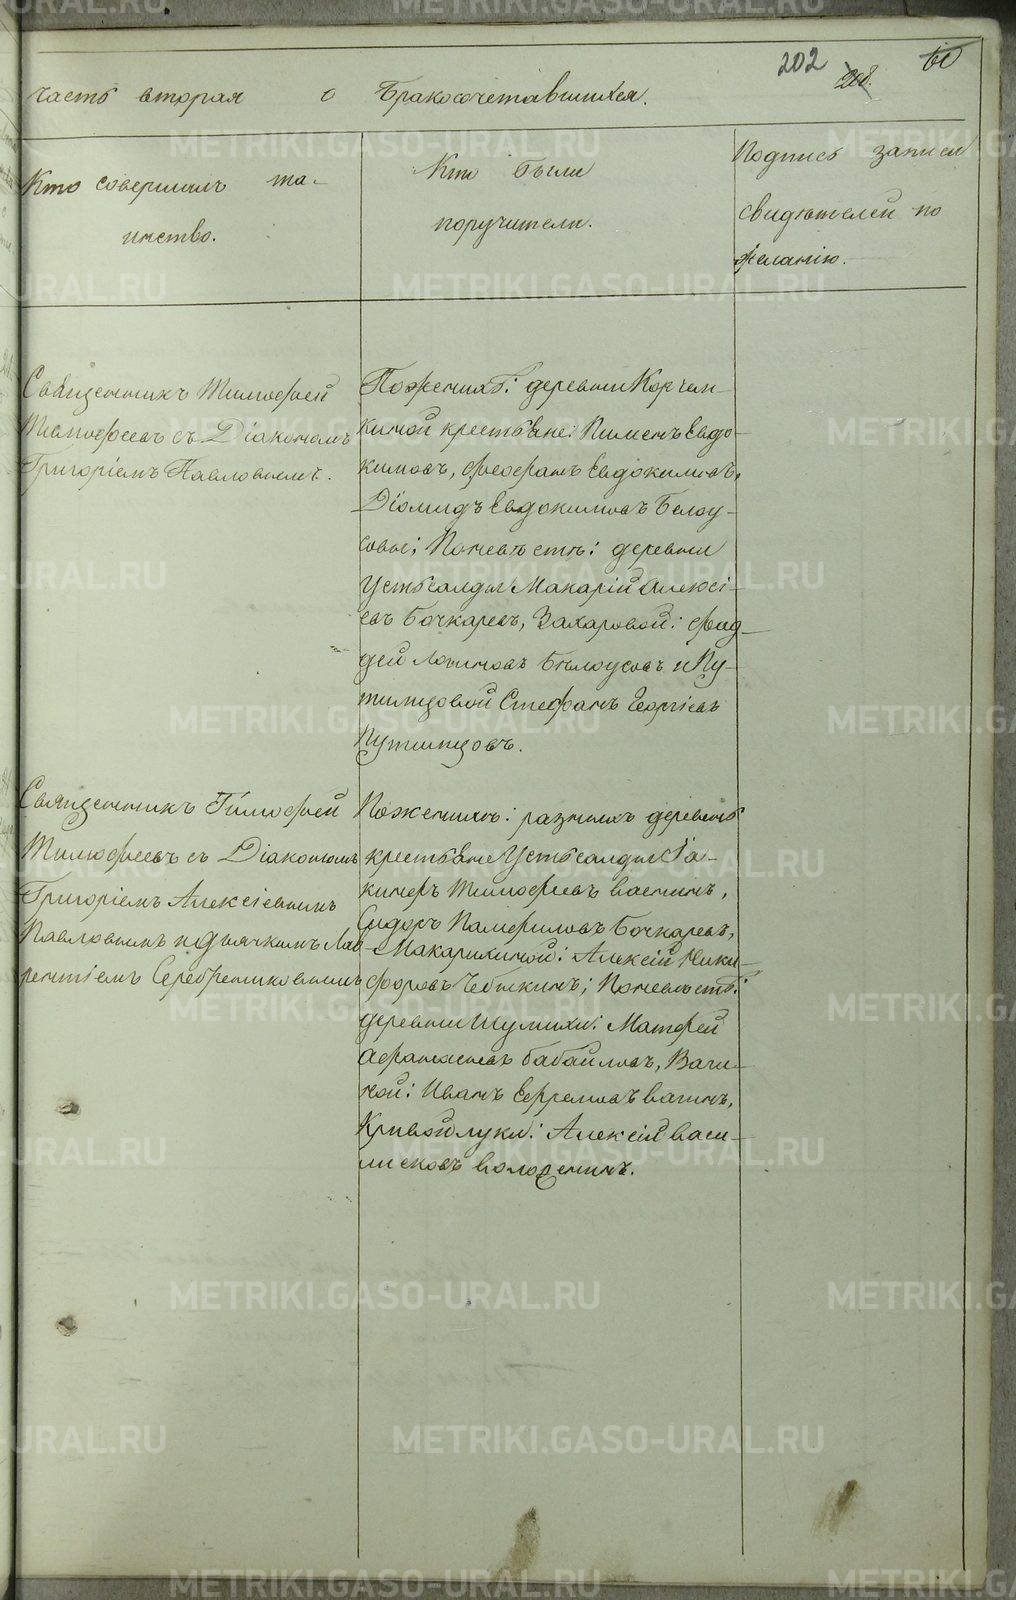 202
60
часть вторая о бракосочетавшихся.
Кто совершилъ та-
инство.
Кто были
поручители.
Подпись записи
свидѣтелей по
желанію.
Священникъ Тимофей
Тимофеевъ съ Діакономъ
Григоріемъ Павловымъ.
По женихѣ: деревни Корчем-
киной крестьяне: Пименъ Евдо-
кимовъ, Феофанъ Евдокимовъ,
Діомидъ Евдокимовъ Белоу-
совы; По невѣстѣ: деревни
Устьсалды Макарій Алексі-
евъ Бочкаревъ, Захаровой: Фад-
дей Логиновъ Бѣлоусовъ и Пу-
тилцовой Стефанъ Георгіевъ
Путилцовъ.
Священникъ Тимофей
Тимофеевъ съ Діакономъ
Григоріемъ Алексіевымъ
Павловымъ и дьячкомъ Лав-
рентіемъ Серебрениковымъ
По женихѣ: разныхъ деревень
крестьяне Устьсалды Іа-
кинфъ Тимофеевъ вагинъ,
Сидоръ Памфиловъ Бочкаревъ,
Макарихиной: Алексій Ники-
форовъ Чебыкинъ; По невѣстѣ:
деревни Шумихи: Матфей
Афанасьевъ бабайловъ, Ваги-
ной: Иванъ Ефремовъ вагинъ,
Кривойлуки: Алексій васи-
лисковъ володенинъ.
METRIKI.GASO-URAL.RU